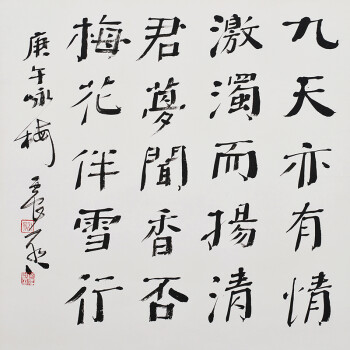 九天亦有情
激濁而揚清
君夢聞香否
梅花伴雪行
庚午咏梅